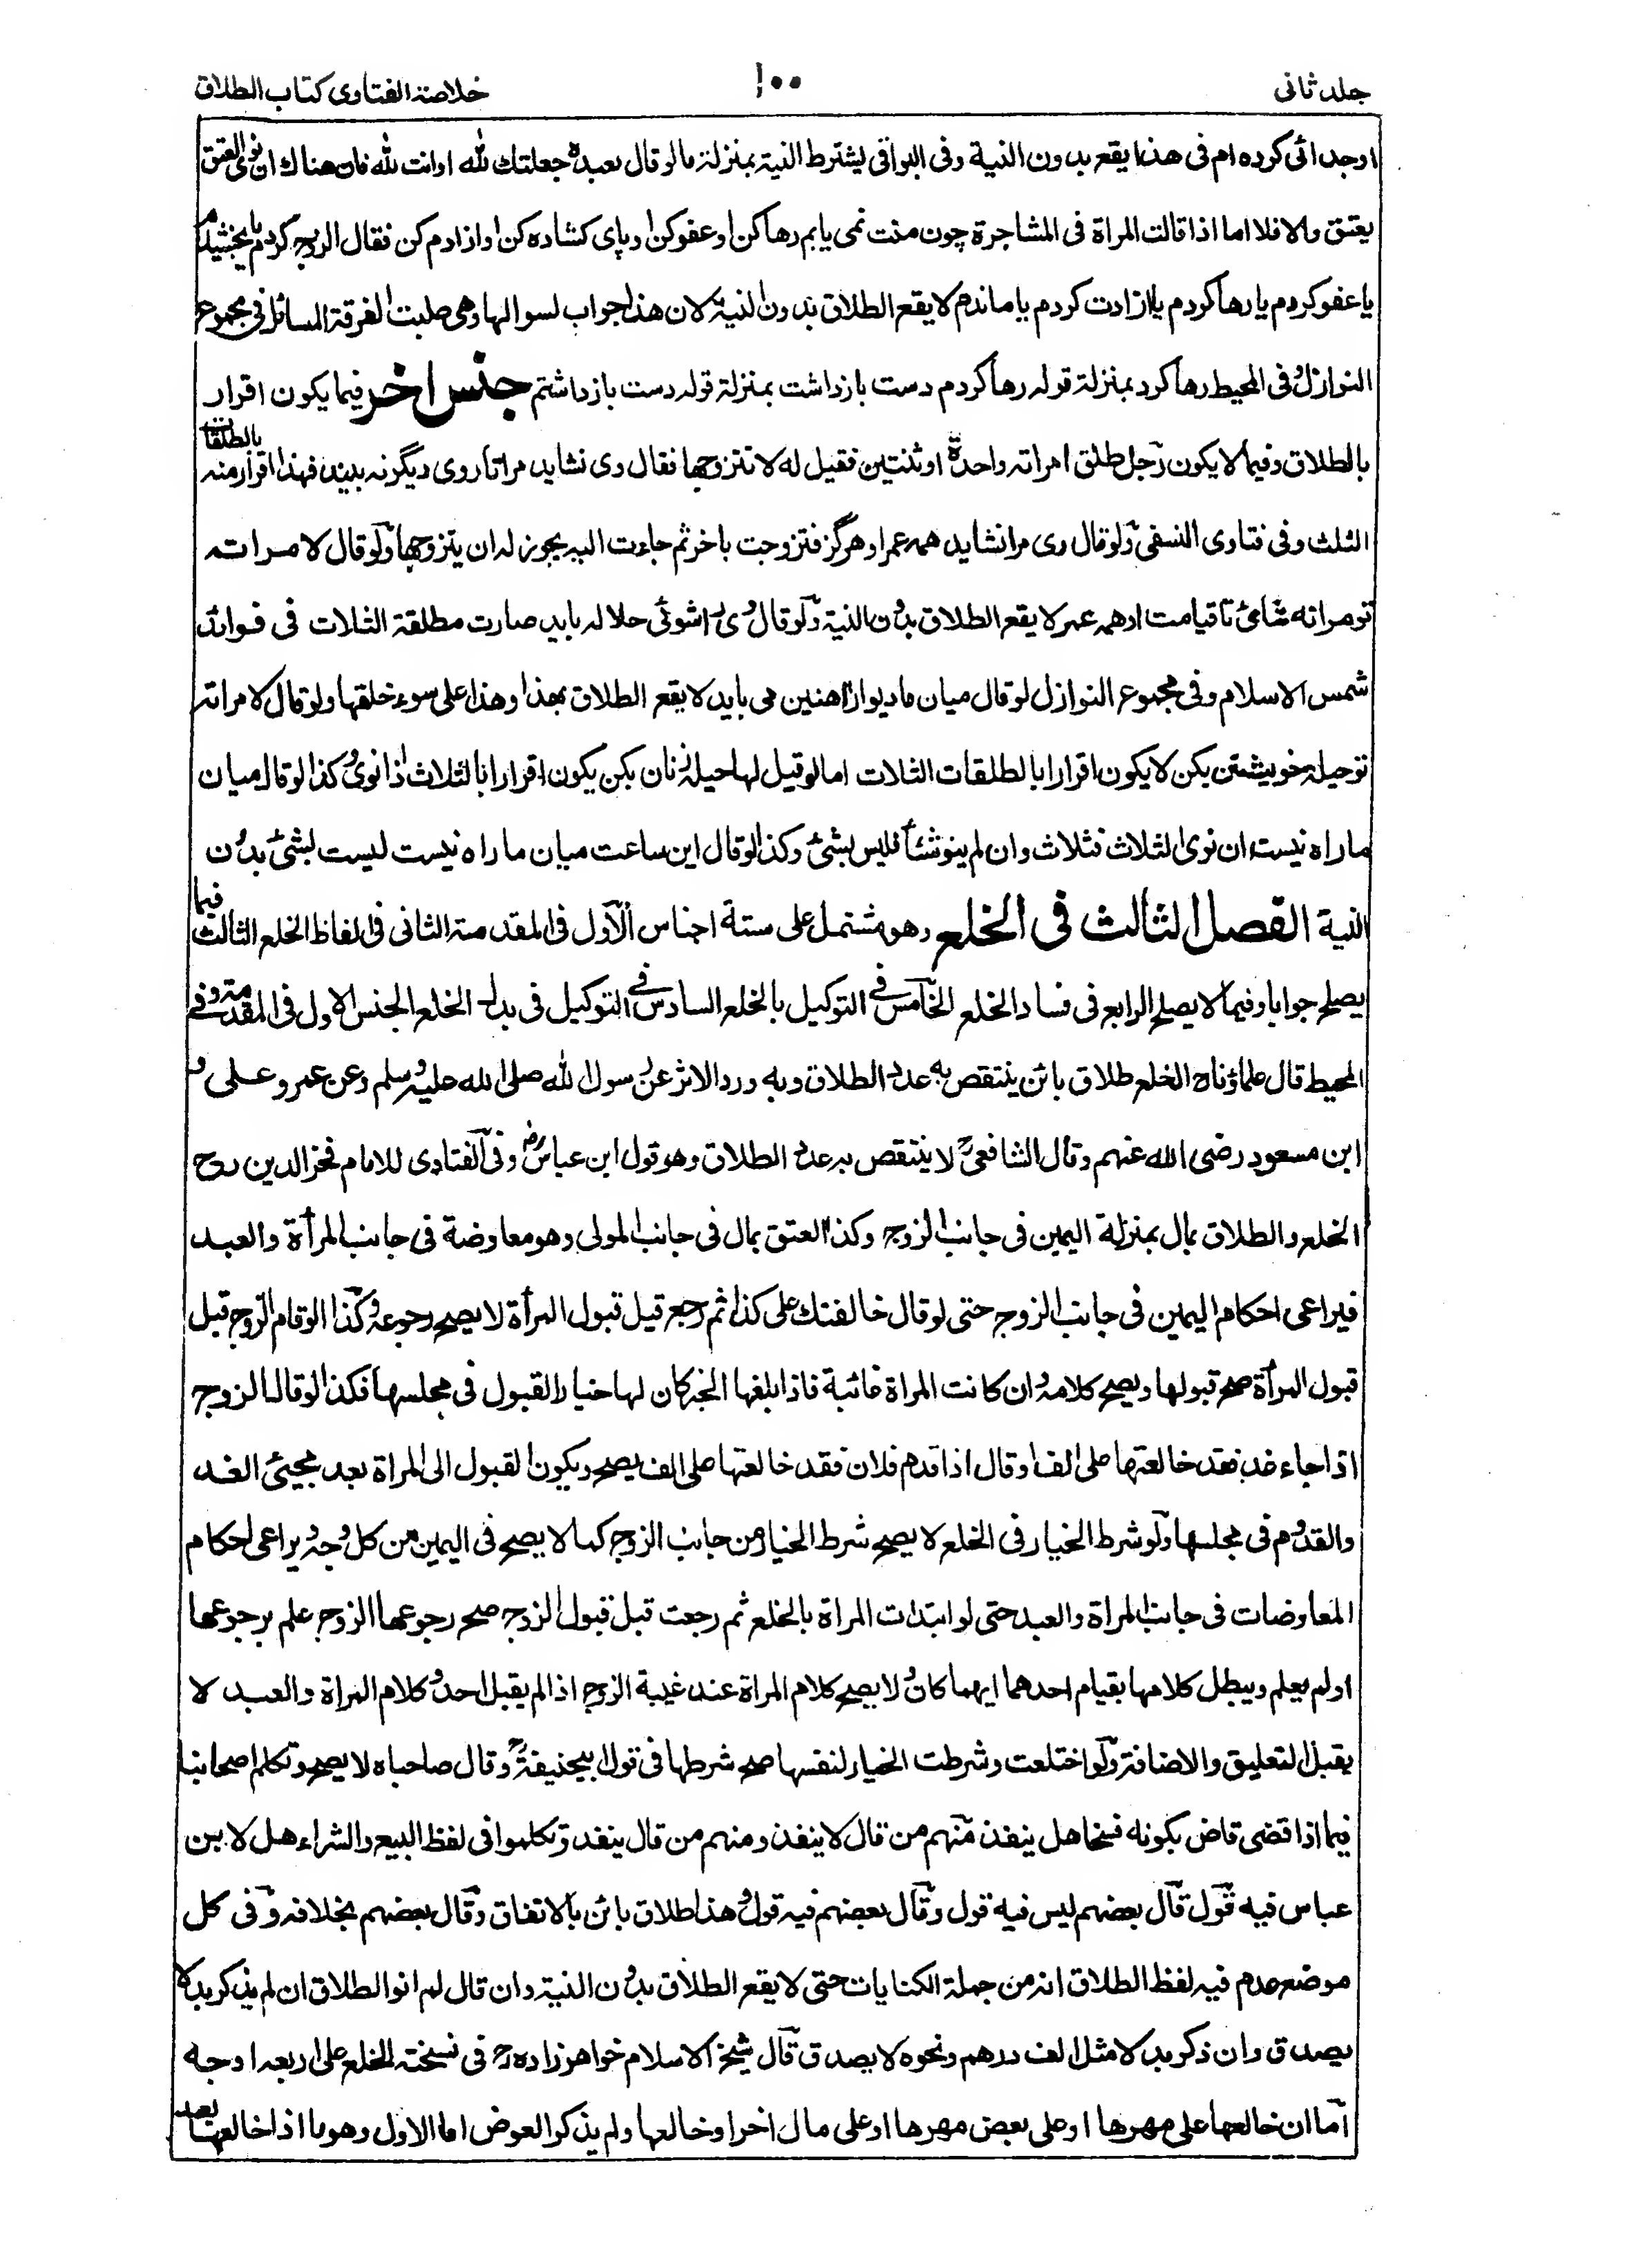 جلد ثانى ١٠٠ خلاصة الفتاوى كتاب الطلاق
او جدائى كرده ام فى هذا يقع بدون النية وفى البواقى يشترط النية بمنزلة ما لو قال لعبده جعلتك لله او انت لله فان هناك ان نوى العتق
يعتق والا فلا اما اذا قالت المراة فى المشاجرة چون منت نمى يابم رها كن او عفو كن او پاى كشاده كن او ازادم كن فقال الزوج كردم يا بخشيدم
يا عفو كردم يا رها كردم يا ازادت كردم يا ماندم لا يقع الطلاق بدون النية لان هذا جواب لسوالها وهى طلبت الفرقة المسائل فى مجموع
النوازل وفى المحيط رها كرد بمنزلة قوله رها كردم دست بازداشت بمنزلة قوله دست بازداشتم جنس اخر فيما يكون اقرار
بالطلاق وفيما لا يكون رجل طلق امراته واحدة او ثنتين فقيل له لا تتزوجها فقال وى نشايد مرا تا روى ديگر نه بيند فهذا اقرار منه بالطلقات
الثلث وفى فتاوى النسفى ولو قال وى مرا نشايد همه عمر او هرگز فتزوجت باخر ثم جاءت اليه يجوز له ان يتزوجها ولو قال لامراته
تو مرا نه شائى تا قيامت او همه عمر لا يقع الطلاق بدون النية ولو قال وى را شوئى حلاله بايد صارت مطلقة الثلاث فى فوائد
شمس الاسلام وفى مجموع النوازل لو قال ميان ما ديوار اهنين مى بايد لا يقع الطلاق بهذا وهذا على سوء خلقها ولو قال لامراته
تو حيله خويشتن بكن لا يكون اقرارا بالطلقات الثلاث اما لو قيل لها حيلۀ زنان بكن يكون اقرارا بالثلاث اذا نوى وكذا لو قال ميان
ما راه نيست ان نوى الثلاث فثلاث وان لم ينو شئأ فليس بشئ وكذا لو قال اين ساعت ميان ما راه نيست ليست بشئ بدون
النية الفصل الثالث فى الخلع وهو مشتمل على ستة اجناس الاول فى المقدمة الثانى فى الفاظ الخلع الثالث فيما
يصلح جوابا وفيما لا يصلح الرابع فى فساد الخلع الخامس فى التوكيل بالخلع السادس فى التوكيل فى بدل الخلع الجنس الاول فى المقدمة وفى
المحيط قال علماؤنا رح الخلع طلاق بائن ينتقص به عدد الطلاق وبه ورد الاثر عن رسول الله صلى الله عليه وسلم وعن عمر وعلى و
ابن مسعود رضى الله عنهم وقال الشافعى رح لا ينتقص به عدد الطلاق وهو قول ابن عباس رض وفى الفتاوى للامام فخر الدين رح
الخلع والطلاق بمال بمنزلة اليمين فى جانب الزوج وكذا العتق بمال فى جانب المولى وهو معاوضة فى جانب المرأة والعبد
فيراعى احكام اليمين فى جانب الزوج حتى لو قال خالفتك على كذا ثم رجع قبل قبول المرأة لا يصح رجوعه وكذا لو قام الزوج قبل
قبول المرأة صح قبولها ويصح كلامه وان كانت المراة غائبة فاذا بلغها الخبر كان لها خيار القبول فى مجلسها فكذا لو قال الزوج
اذا جاء غد فقد خالعتها على الف او قال اذا قدم فلان فقد خالعتها على الف يصح ويكون القبول الى المراة بعد مجيئ الغد
والقدوم فى مجلسها ولو شرط الخيار فى الخلع لا يصح شرط الخيار من جانب الزوج كما لا يصح فى اليمين من كل وجه ويراعى احكام
المعاوضات فى جانب المراة والعبد حتى لو ابتدات المراة بالخلع ثم رجعت قبل قبول الزوج صح رجوعها الزوج علم برجوعها
او لم يعلم ويبطل كلامها بقيام احدهما ايهما كان ولا يصح كلام المراة عند غيبة الزوج اذا لم يقبل احد وكلام المراة والعبد لا
يقبل التعليق والاضافة ولو اختلعت وشرطت الخيار لنفسها صح شرطها فى قول ابيحنيفة رح وقال صاحباه لا يصح وتكلم اصحابنا
فيما اذا قضى قاض بكونه فسخا هل ينفذ منهم من قال لا ينفذ ومنهم من قال ينفد وتكلموا فى لفظ البيع والشراء هل لابن
عباس فيه قول قال بعضهم ليس فيه قول وقال بعضهم فيه قول وهذا طلاق بائن بالاتفاق وقال بعضهم بخلافه وفى كل
موضع عدم فيه لفظ الطلاق انه من جملة الكنايات حتى لا يقع الطلاق بدون النية وان قال لم انو الطلاق ان لم يذكر بدلا
يصدق وان ذكر بدلا مثل الف درهم ونحوه لا يصدق قال شيخ الاسلام خواهر زاده رح فى نسخته الخلع على اربعه اوجه
اما ان خالعها على مهرها او على بعض مهرها او على مال اخر او خالعها ولم يذكر العوض اما الاول وهو ما اذا خالعها بعد